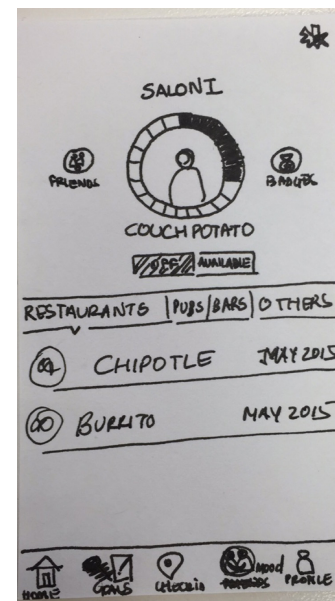 SALONI
FRIENDS BADGES
COUCH POTATO
OFF AVAILABLE
RESTAURANTS | PUBS/BARS | OTHERS
CHIPOTLE MAY 2015
BURRITO MAY 2015
HOME GOALS CHECKIN MOOD PROFILE